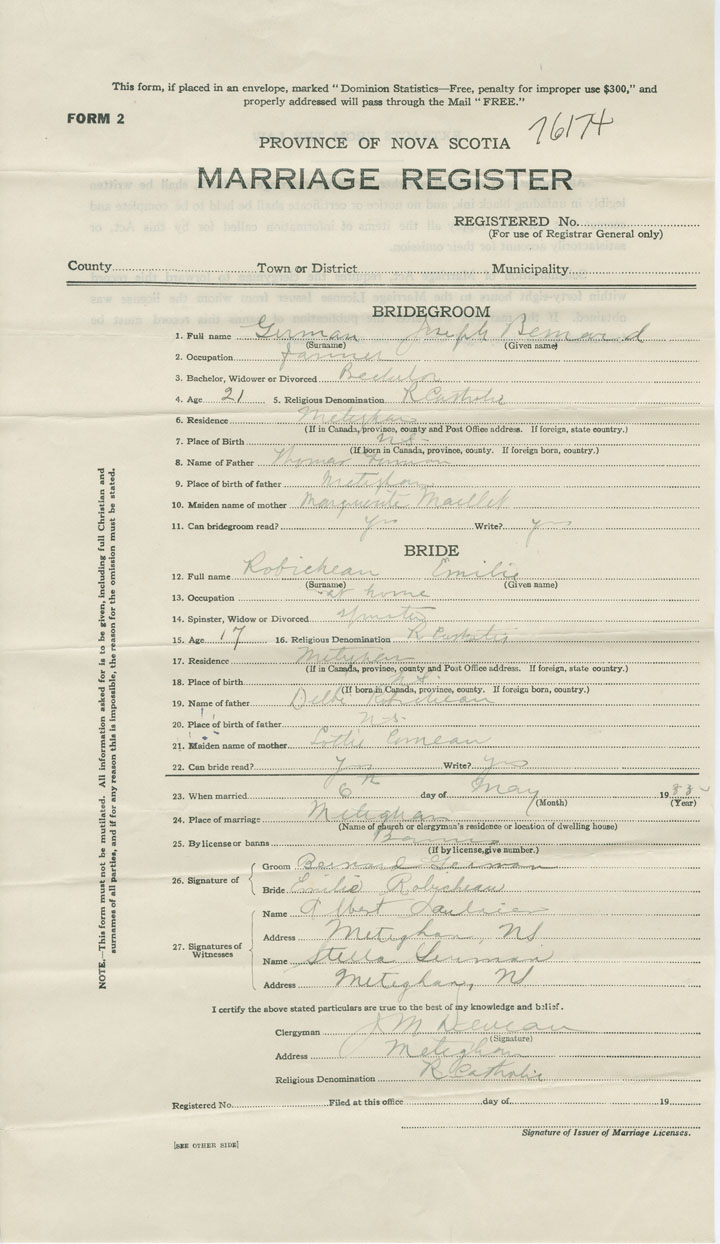 This form, if placed in an envelope, marked "Dominion Statistics—Free, penalty for improper use $300," and
properly addressed will pass through the Mail "FREE."
FORM 2
76174
PROVINCE OF NOVA SCOTIA
MARRIAGE REGISTER
REGISTERED No.
(For use of Registrar General only)
County Town or District Municipality
BRIDEGROOM
1. Full name German Joseph Bernard
(Surname) (Given name)
2. Occupation farmer
3. Bachelor, Widower or Divorced Bachelor
4. Age 21 5. Religious Denomination R Catholic
6. Residence Meteghan
(If in Canada, province, county and Post Office address. If foreign, state country.)
7. Place of Birth N.S.
(If born in Canada, province, county. If foreign born, country.)
8. Name of Father Thomas German
9. Place of birth of father Meteghan
10. Maiden name of mother Marguerite Maillet
11. Can bridegroom read? yes Write? yes
BRIDE
12. Full name Robicheau Emilie
(Surname) (Given name)
13. Occupation at home
14. Spinster, Widow or Divorced spinster
15. Age 17 16. Religious Denomination R Catholic
17. Residence Meteghan
(If in Canada, province, county and Post Office address. If foreign, state country.)
18. Place of birth N.S.
(If born in Canada, province, county. If foreign born, country.)
19. Name of father Robicheau
20. Place of birth of father N.S.
21. Maiden name of mother Lottie Comeau
22. Can bride read? yes Write? yes
23. When married 6th day of May 19
(Month) (Year)
24. Place of marriage Meteghan
(Name of church or clergyman's residence or location of dwelling house)
25. By license or banns Banns
(If by license, give number.)
26. Signature of Groom Bernard German
Bride Emilie Robicheau
27. Signatures of Witnesses
Name Albert Saulnier
Address Meteghan, NS
Name Stella German
Address Meteghan, NS
I certify the above stated particulars are true to the best of my knowledge and belief.
Clergyman
(Signature)
Address Meteghan
Religious Denomination R Catholic
Registered No. Filed at this office day of 19
Signature of Issuer of Marriage Licenses.
[SEE OTHER SIDE]
NOTE.—This form must not be mutilated. All information asked for is to be given, including full Christian and
surnames of all parties, and if for any reason this is impossible, the reason for the omission must be stated.